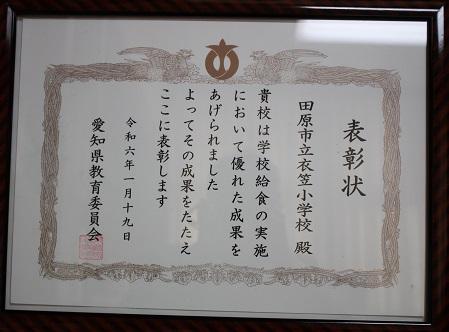 表彰状
田原市立衣笠小学校 殿
貴校は学校給食の実施
において優れた成果を
あげられました
よってその成果をたたえ
ここに表彰します
令和六年一月十九日
愛知県教育委員会